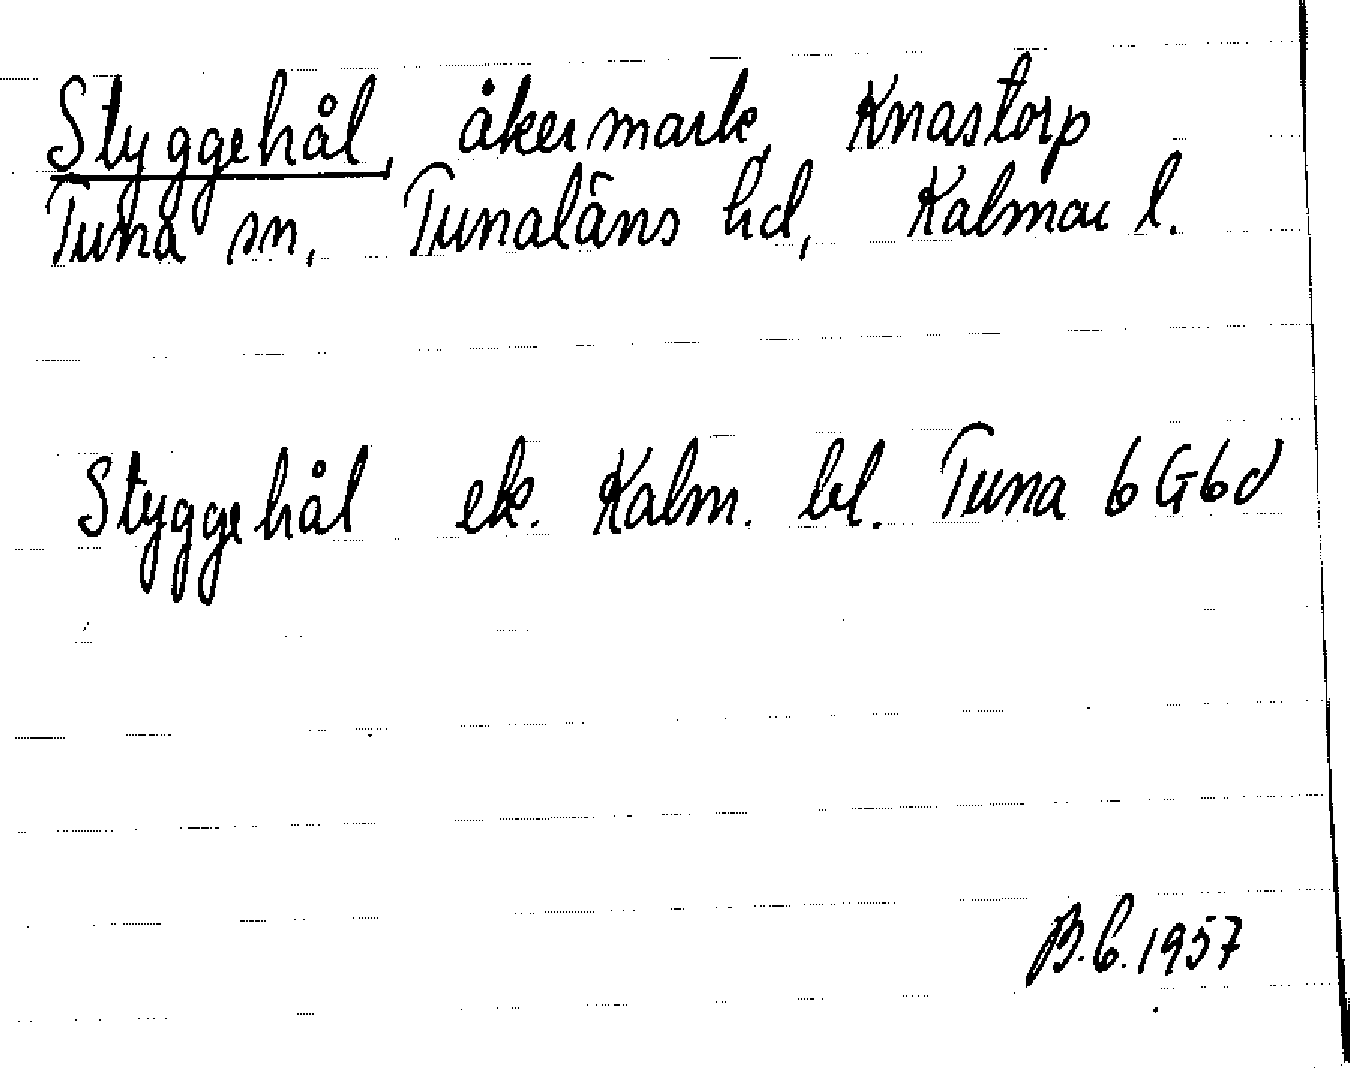 Styggehål, åkermark, Knastorp
Tuna sn, Tunaläns hd, Kalmar l.
Styggehål ek. Kalm. bl. Tuna 6G6d
B.C. 1957